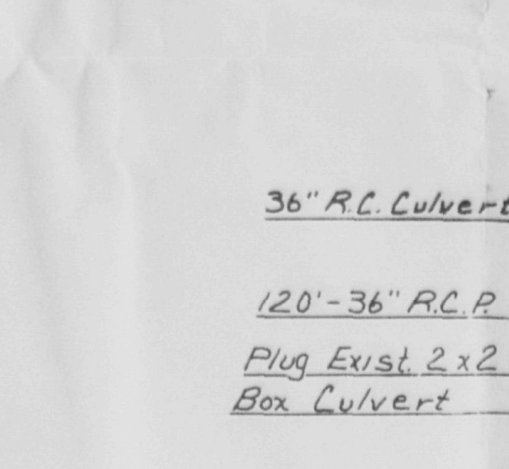 36" R.C. Culvert
120'-36" R.C.P.
Plug Exist. 2x2
Box Culvert